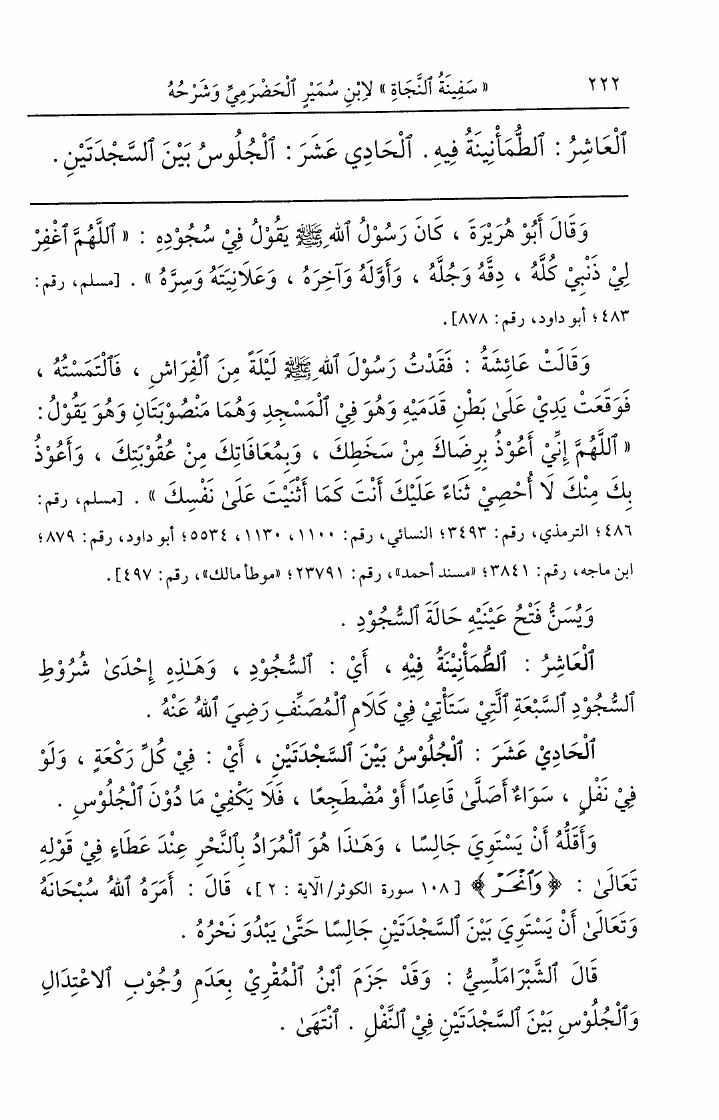 ٢٢٢ « سَفِينَةُ ٱلنَّجَاةِ » لِابْنِ سُمَيْرٍ ٱلْحَضْرَمِيِّ وَشَرْحُهُ
ٱلْعَاشِرُ : ٱلطُّمَأْنِينَةُ فِيهِ . ٱلْحَادِي عَشَرَ : ٱلْجُلُوسُ بَيْنَ ٱلسَّجْدَتَيْنِ .
وَقَالَ أَبُوْ هُرَيْرَةَ ، كَانَ رَسُوْلُ ٱللهِ ﷺ يَقُوْلُ فِيْ سُجُوْدِهِ : « ٱللَّهُمَّ ٱغْفِرْ
لِيْ ذَنْبِيْ كُلَّهُ ، دِقَّهُ وَجُلَّهُ ، وَأَوَّلَهُ وَآخِرَهُ ، وَعَلَانِيَتَهُ وَسِرَّهُ » . [مسلم، رقم:
٤٨٣؛ أبو داود، رقم: ٨٧٨].
وَقَالَتْ عَائِشَةُ : فَقَدْتُ رَسُوْلَ ٱللهِ ﷺ لَيْلَةً مِنَ ٱلْفِرَاشِ ، فَٱلْتَمَسْتُهُ ،
فَوَقَعَتْ يَدِيْ عَلَىٰ بَطْنِ قَدَمَيْهِ وَهُوَ فِيْ ٱلْمَسْجِدِ وَهُمَا مَنْصُوْبَتَانِ وَهُوَ يَقُوْلُ :
« ٱللَّهُمَّ إِنِّيْ أَعُوْذُ بِرِضَاكَ مِنْ سَخَطِكَ ، وَبِمُعَافَاتِكَ مِنْ عُقُوْبَتِكَ ، وَأَعُوْذُ
بِكَ مِنْكَ لَا أُحْصِيْ ثَنَاءً عَلَيْكَ أَنْتَ كَمَا أَثْنَيْتَ عَلَىٰ نَفْسِكَ » . [مسلم، رقم:
٤٨٦؛ الترمذي، رقم: ٣٤٩٣؛ النسائي، رقم: ١١٠٠، ١١٣٠، ٥٥٣٤؛ أبو داود، رقم: ٨٧٩؛
ابن ماجه، رقم: ٣٨٤١؛ «مسند أحمد»، رقم: ٢٣٧٩١؛ «موطأ مالك»، رقم: ٤٩٧].
وَيُسَنُّ فَتْحُ عَيْنَيْهِ حَالَةَ ٱلسُّجُوْدِ .
ٱلْعَاشِرُ : ٱلطُّمَأْنِيْنَةُ فِيْهِ ، أَيْ : ٱلسُّجُوْدِ ، وَهَـٰذِهِ إِحْدَىٰ شُرُوْطِ
ٱلسُّجُوْدِ ٱلسَّبْعَةِ ٱلَّتِيْ سَتَأْتِيْ فِيْ كَلَامِ ٱلْمُصَنِّفِ رَضِيَ ٱللهُ عَنْهُ .
ٱلْحَادِيْ عَشَرَ : ٱلْجُلُوْسُ بَيْنَ ٱلسَّجْدَتَيْنِ ، أَيْ : فِيْ كُلِّ رَكْعَةٍ ، وَلَوْ
فِيْ نَفْلٍ ، سَوَاءٌ أَصَلَّىٰ قَاعِدًا أَوْ مُضْطَجِعًا ، فَلَا يَكْفِيْ مَا دُوْنَ ٱلْجُلُوْسِ .
وَأَقَلُّهُ أَنْ يَسْتَوِيَ جَالِسًا ، وَهَـٰذَا هُوَ ٱلْمُرَادُ بِٱلنَّحْرِ عِنْدَ عَطَاءٍ فِيْ قَوْلِهِ
تَعَالَىٰ : ﴿ وَٱنْحَرْ ﴾ [١٠٨ سورة الكوثر/الآية : ٢]، قَالَ : أَمَرَهُ ٱللهُ سُبْحَانَهُ
وَتَعَالَىٰ أَنْ يَسْتَوِيَ بَيْنَ ٱلسَّجْدَتَيْنِ جَالِسًا حَتَّىٰ يَبْدُوَ نَحْرُهُ .
قَالَ ٱلشَّبْرَامَلِّسِيُّ : وَقَدْ جَزَمَ ٱبْنُ ٱلْمُقْرِيْ بِعَدَمِ وُجُوْبِ ٱلِاعْتِدَالِ
وَٱلْجُلُوْسِ بَيْنَ ٱلسَّجْدَتَيْنِ فِيْ ٱلنَّفْلِ . ٱنْتَهَىٰ .